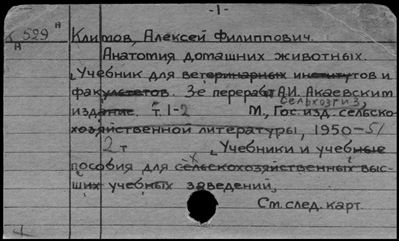 -1-
529 А
А
Климов, Алексей Филиппович.
Анатомия домашних животных.
Учебник для ветеринарных институтов и
факультетов. 3-е перераб. А.И. Акаевским
издание. т. 1-2 М., Гос. изд. сельско-
Сельхозгиз,
хозяйственной литературы, 1950-51
2 т "Учебники и учебные
пособия для с-х сельскохозяйственных выс-
ших учебных заведений"
См. след. карт.